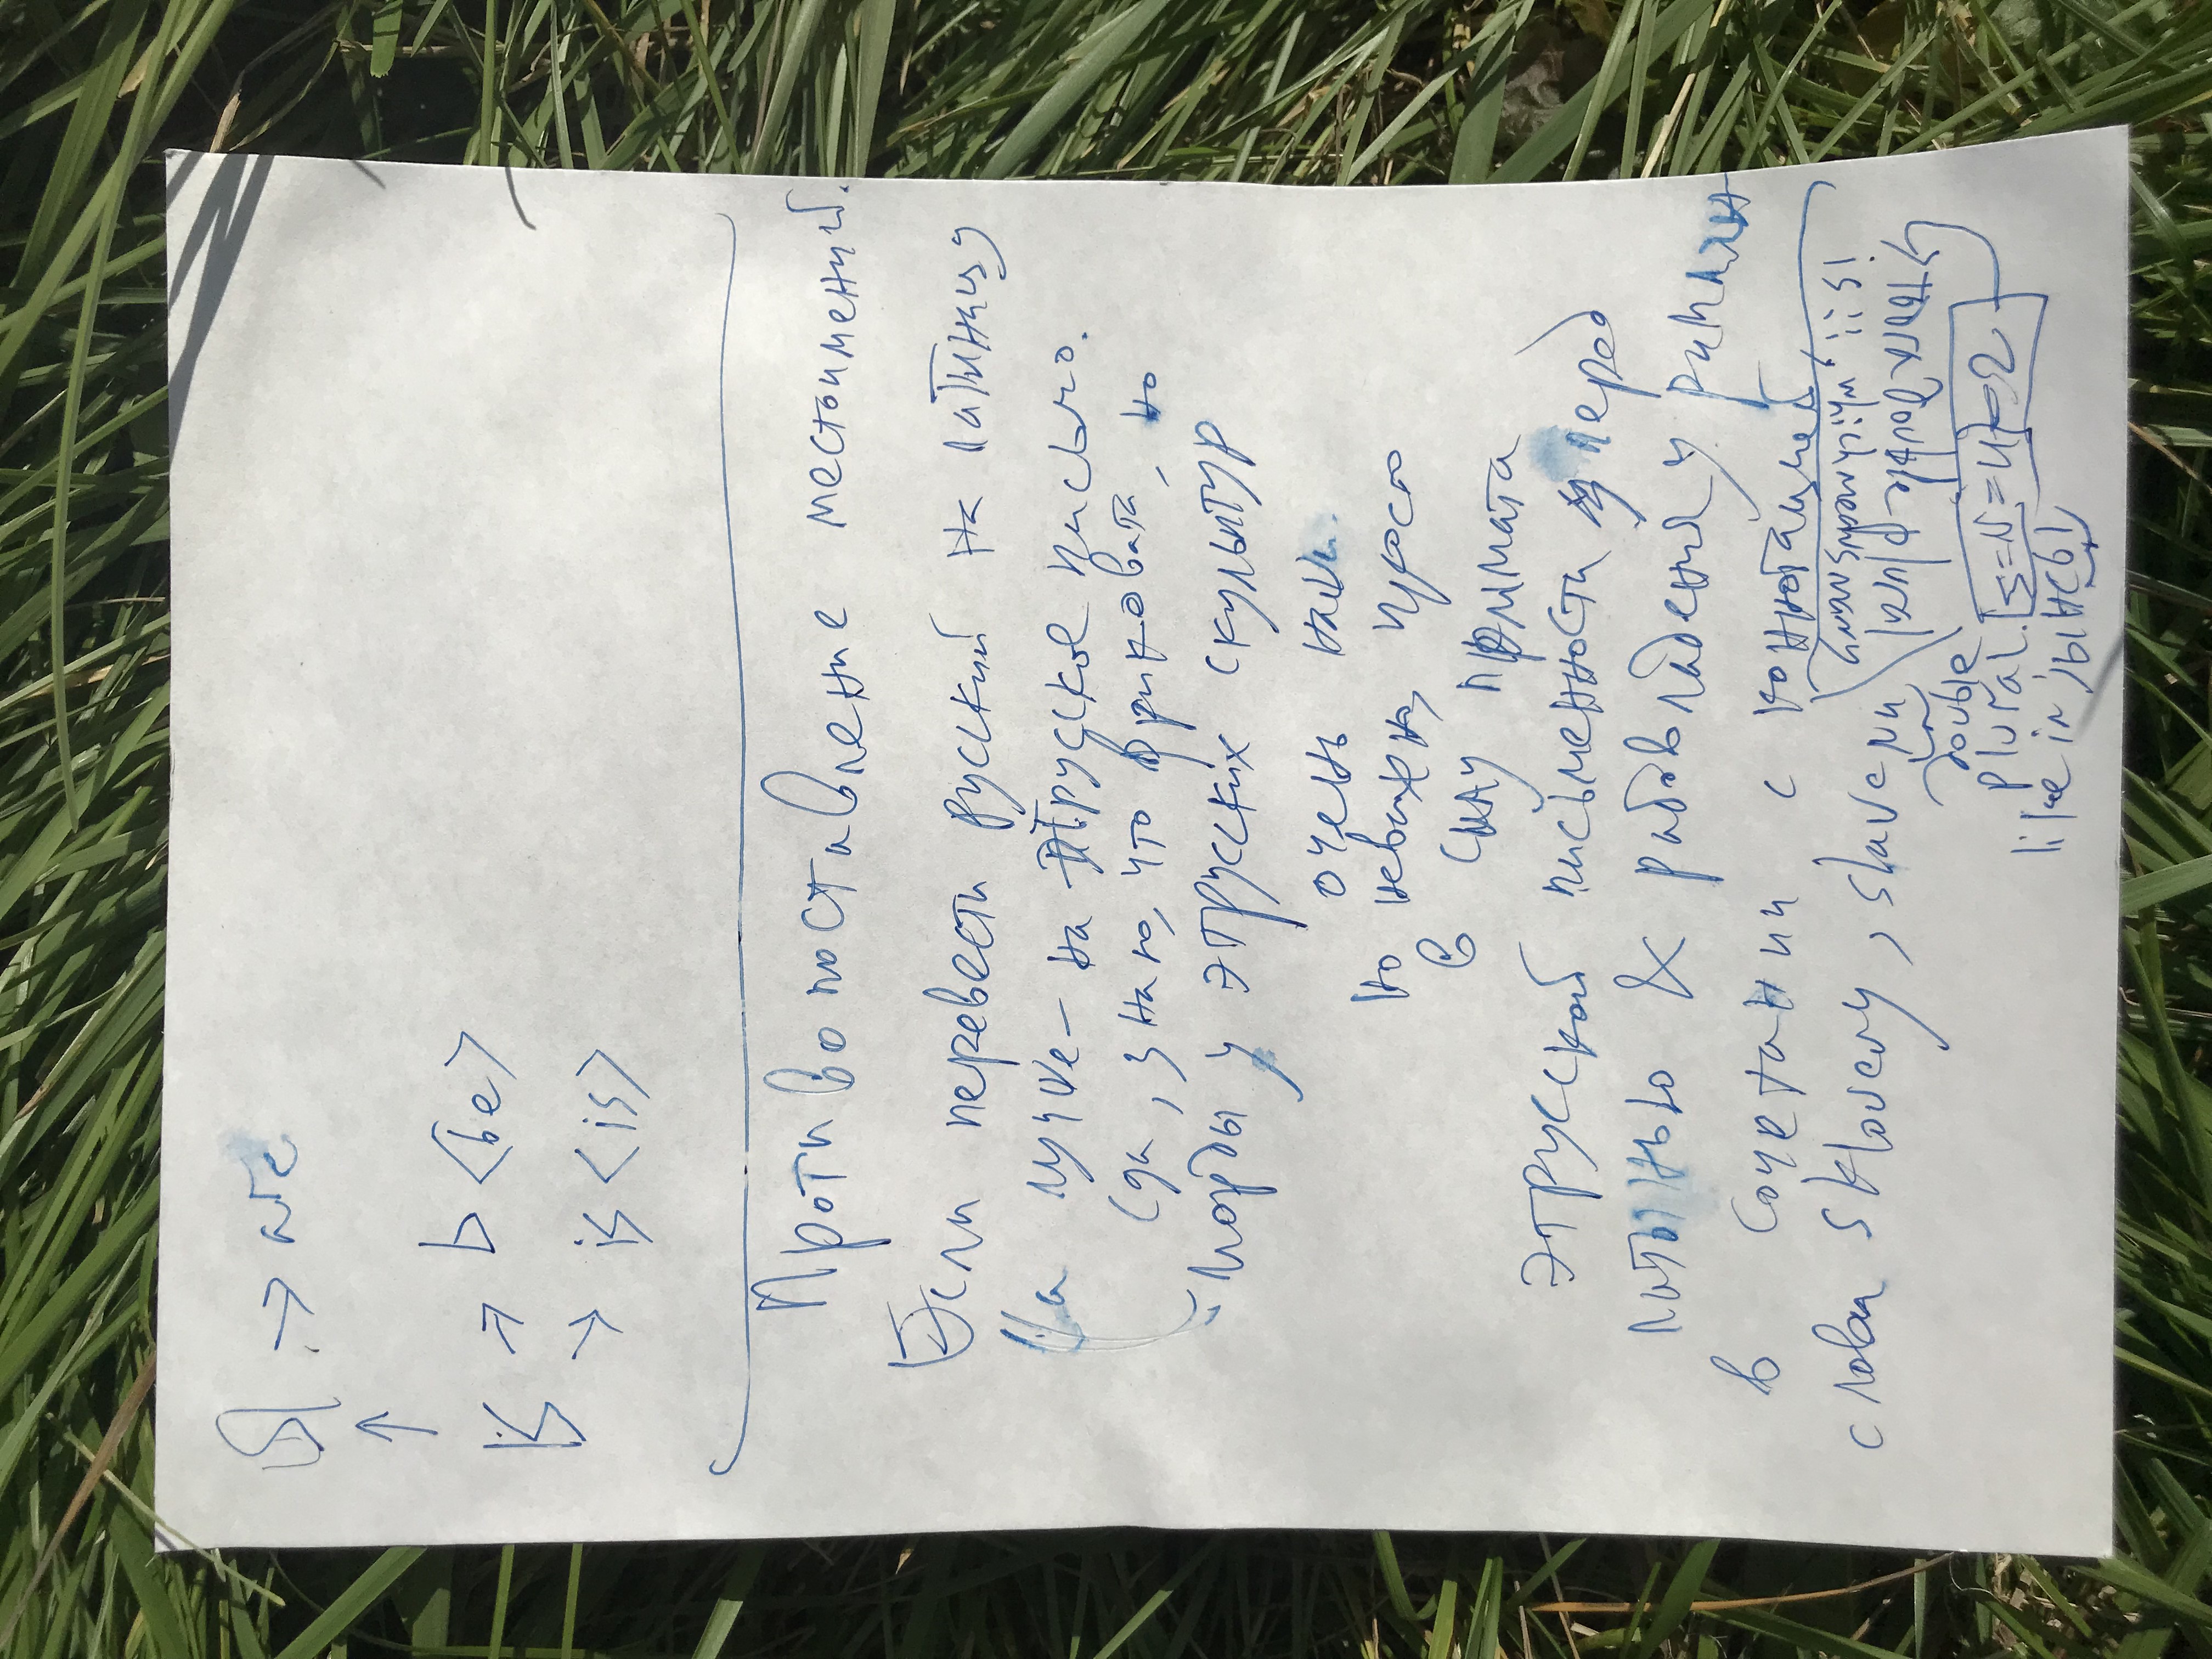 Я → are
↑
→ b <be>
→ is <is>
Противопоставление местоимений.
Если перевести русский на латиницу
(а лучше – на этрусское письмо.
(да, знаю, что фриковата, но
морды у этрусских скульптур
очень наши.
но неважно, просто
в силу примата
этрусской письменности перед
латынью & рабовладения у римлян
в сочетании с коннотацией
слова sklaveny, slaveni
is ii, which means many
double plural
double
plural. [Σ=N=И]=S
like in